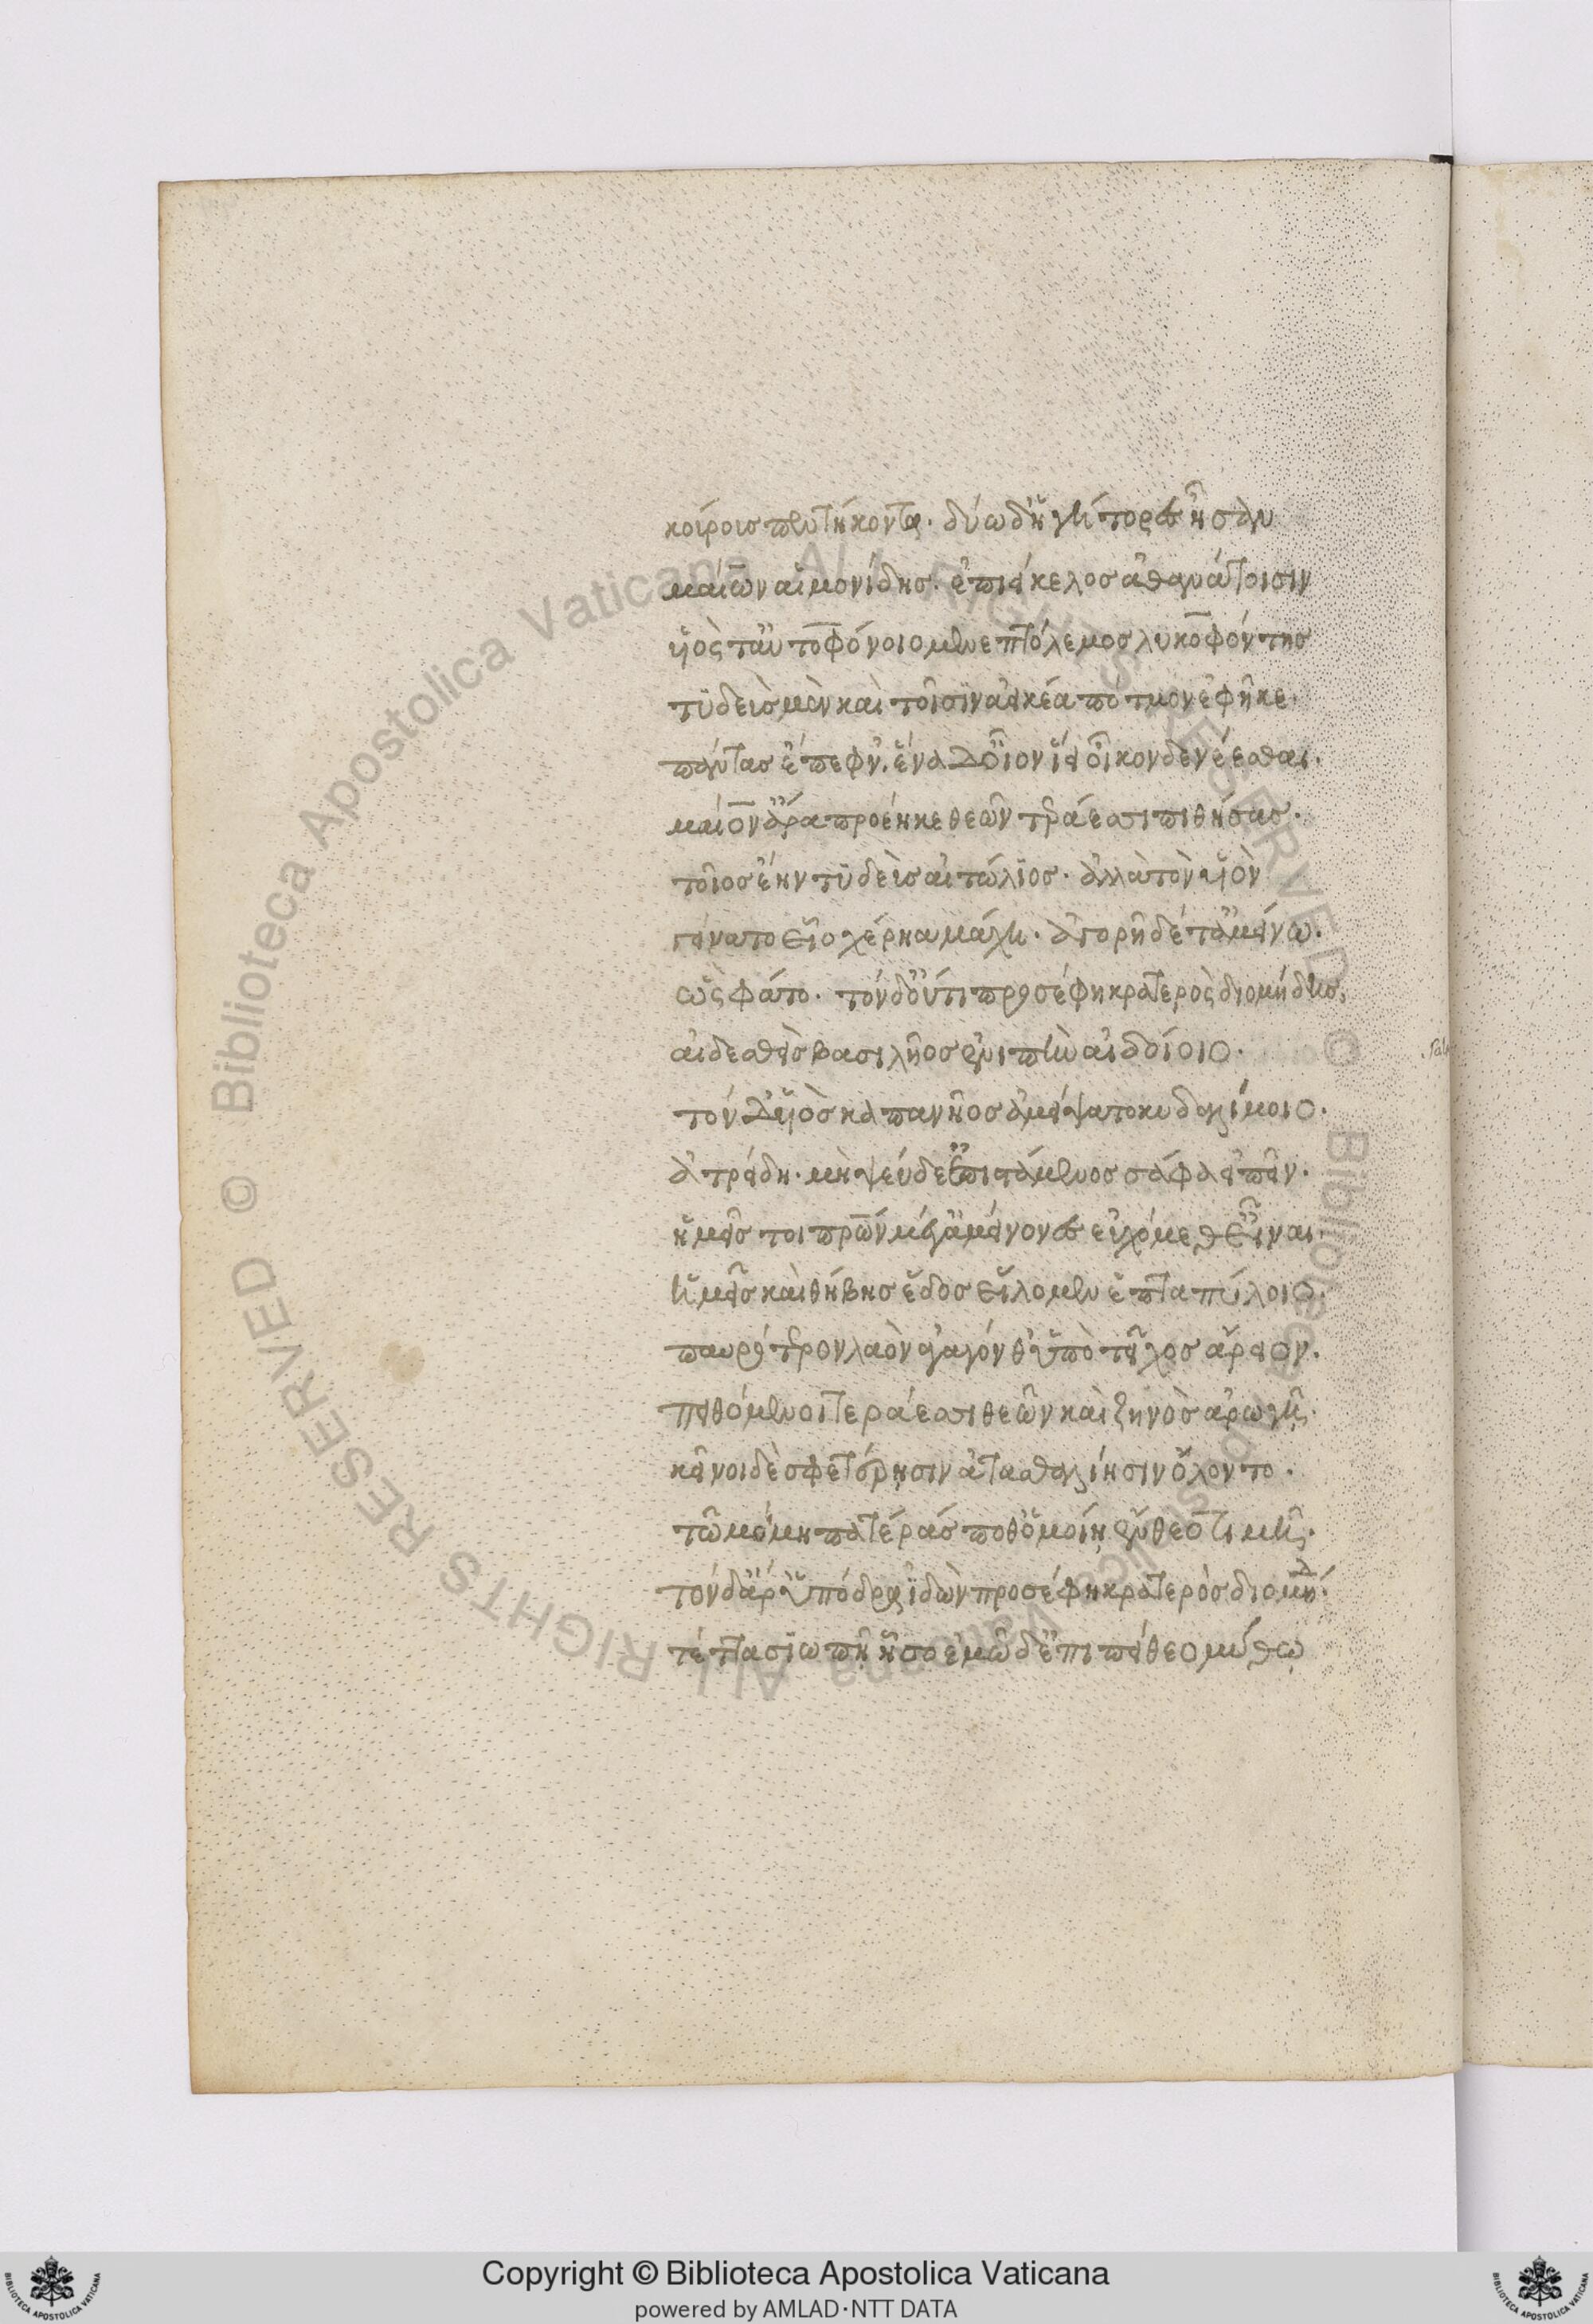 κούρους πεντήκοντα· δύω δ' ἡγήτορες ἦσαν
μαίων αἱμονίδης· ἐπιείκελος ἀθανάτοισιν
υἱός τ' αὐτοφόνοιο μενεπτόλεμος λυκοφόντης
τυδεὺς μὲν καὶ τοῖσιν ἀεικέα πότμον ἐφῆκε·
πάντας ἔπεφν'. ἕνα δ' οἶον ἵει οἶκον δὲ νέεσθαι·
μαίον' ἄρα προέηκε θεῶν τεράεσσι πιθήσας·
τοῖος ἔην τυδεὺς αἰτώλιος· ἀλλὰ τὸν υἱὸν
γείνατο εἷο χέρηα μάχῃ· ἀγορῇ δέ τ' ἀμείνω·
ὣς φάτο· τὸν δ' οὔτι προσέφη κρατερὸς διομήδης,
αἰδεσθεὶς βασιλῆος ἐνιπὴν αἰδοίοιο·
τὸν δ' υἱὸς καπανῆος ἀμείψατο κυδαλίμοιο·
ἀτρείδη· μὴ ψεύδε' ἐπιστάμενος σάφα εἰπεῖν·
ἡμεῖς τοι πατέρων μέγ' ἀμείνονες εὐχόμεθ' εἶναι·
ἡμεῖς καὶ θήβης ἕδος εἵλομεν ἑπταπύλοιο·
παυρότερον λαὸν ἀγαγόνθ' ὑπὸ τεῖχος ἄρειον·
πειθόμενοι τεράεσσι θεῶν καὶ ζηνὸς ἀρωγῇ·
κεῖνοι δὲ σφετέρῃσιν ἀτασθαλίῃσιν ὄλοντο·
τῶ μή μοι πατέρας ποθ' ὁμοίῃ ἔνθεο τιμῇ·
τὸν δ' ἄρ' ὑπόδρα ἰδὼν προσέφη κρατερὸς διομήδ
τέττα σιωπῇ ἧσο ἐμῷ δ' ἐπιπείθεο μύθῳ
Copyright © Biblioteca Apostolica Vaticana
powered by AMLAD·NTT DATA
© Biblioteca Apostolica Vaticana ALL RIGHTS RESERVED © Biblioteca Apostolica Vaticana ALL RIGHTS RESERVED
BIBLIOTECA APOSTOLICA VATICANA
BIBLIOTECA APOSTOLICA VATICANA